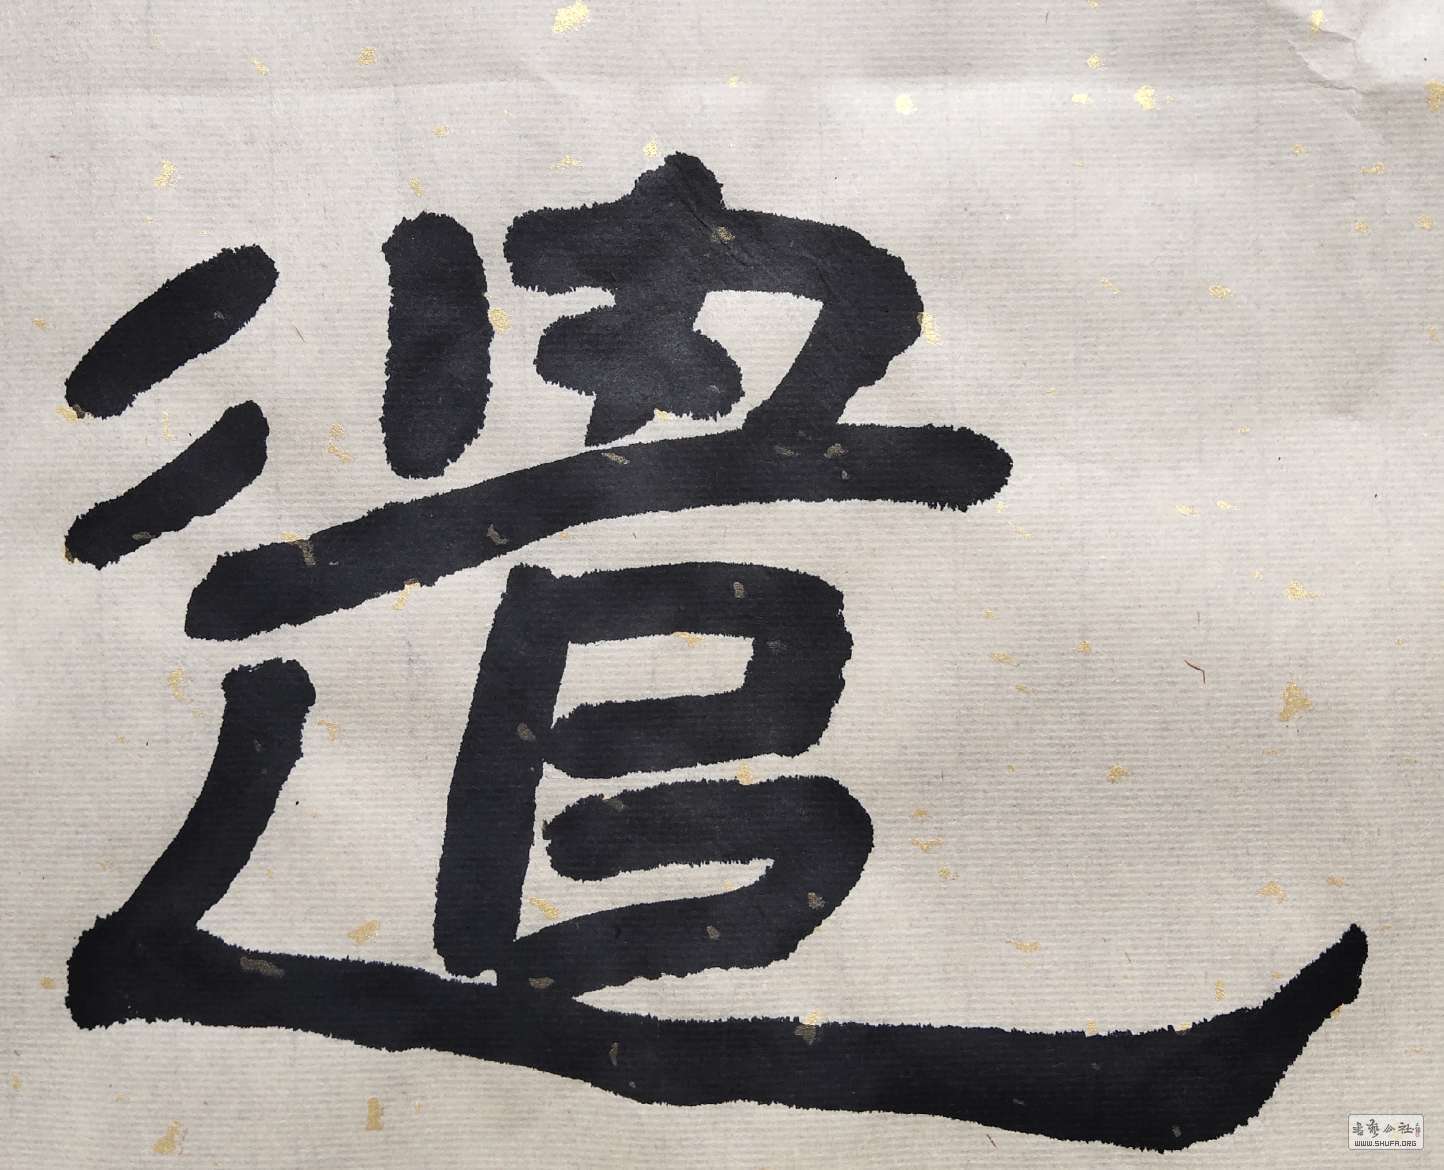 遣
书艺公社
WWW.SHUFA.ORG